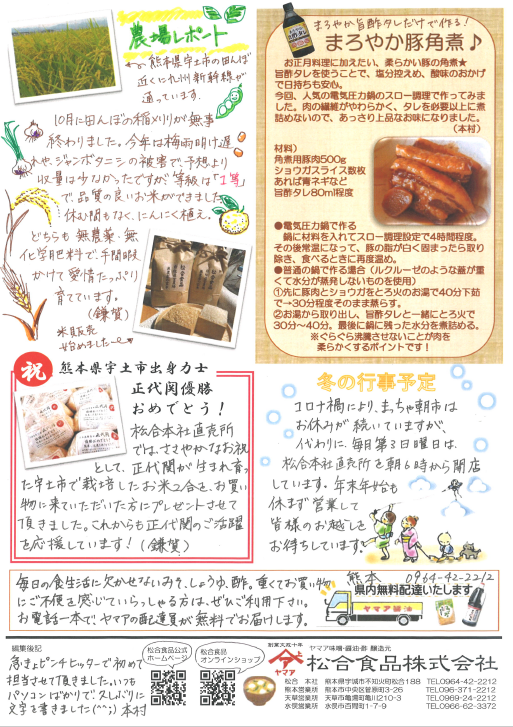 農場レポート
熊本県宇土市の田んぼ
近くに九州新幹線が
通っています。
10月に田んぼの稲刈りが無事
終わりました。今年は梅雨明け遅
れや、ジャンボタニシの被害で、予想より
収量は少なかったですが、等級は「1等」
で、品質の良いお米ができました。
休む間もなく、にんにく植え。
どちらも無農薬・無
化学肥料で、手間暇
かけて愛情たっぷり
育てています。
(鎌賀)
米販売
始めました〜
まろやか旨酢タレだけで作る!
まろやか豚角煮♪
お正月料理に加えたい、柔らかい豚の角煮★
旨酢タレを使うことで、塩分控えめ、酸味のおかげ
で日持ちも安心。
今回、人気の電気圧力鍋のスロー調理で作ってみま
した。肉の繊維がやわらかく、タレを必要以上に煮
詰めないので、あっさり上品なお味になりました。
(本村)
材料)
角煮用豚肉500g
ショウガスライス数枚
あれば青ネギなど
旨酢タレ80ml程度
●電気圧力鍋で作る
鍋に材料を入れてスロー調理設定で4時間程度。
その後常温になって、豚の脂が白く固まったら取り
除き、食べるときに再度温め。
●普通の鍋で作る場合(ルクルーゼのような蓋が重
くて水分が蒸発しないものを使用)
①先に豚肉とショウガをとろ火のお湯で40分下茹
で→30分程そのまま蒸らす。
②お湯から取り出し、旨酢タレと一緒にとろ火で
30分〜40分。最後に鍋に残った水分を煮詰める。
※ぐらぐら沸騰させないことが肉を
柔らかくするポイントです!
祝
熊本県宇土市出身力士
正代関優勝
おめでとう!
松合本社直売所
では、ささやかなお祝
として、正代関が生まれ育っ
た宇土市で栽培したお米2合を、お買い
物に来ていただいた方にプレゼントさせて
頂きました。これからも正代関のご活躍
を応援しています!(鎌賀)
冬の行事予定
コロナ禍により、まっちゃ朝市は
お休みが続いていますが、
代わりに、毎月第3日曜日は、
松合本社直売所を朝6時から開店
しています。年末年始も
休まず営業して
皆様のお越しを
お待ちしています。
毎日の食生活に欠かせないみそ、しょうゆ、酢。重くてお買い物
にご不便を感じていらっしゃる方は、ぜひご利用下さい。
お電話一本で、ヤマアの配達員が無料でお届けします。
熊本 0964-42-2212
県内無料配達いたします
ヤマア醤油
編集後記
急きょピンチヒッターで初めて
担当させて頂きました。いつも
パソコンばかりで、久しぶりに
文字を書きました(^^;) 本村
松合食品公式
ホームページ
松合食品
オンラインショップ
創業文政十年
ヤマア
ヤマア味噌・醤油・酢 醸造元
松合食品株式会社
松合 本社 熊本県宇城市不知火町松合188 TEL0964-42-2212
熊本営業所 熊本市中央区菅原町3-26 TEL096-371-2212
天草営業所 天草市亀場町亀川210-3 TEL0969-24-2212
水俣営業所 水俣市百間町1-7-9 TEL0966-62-3372